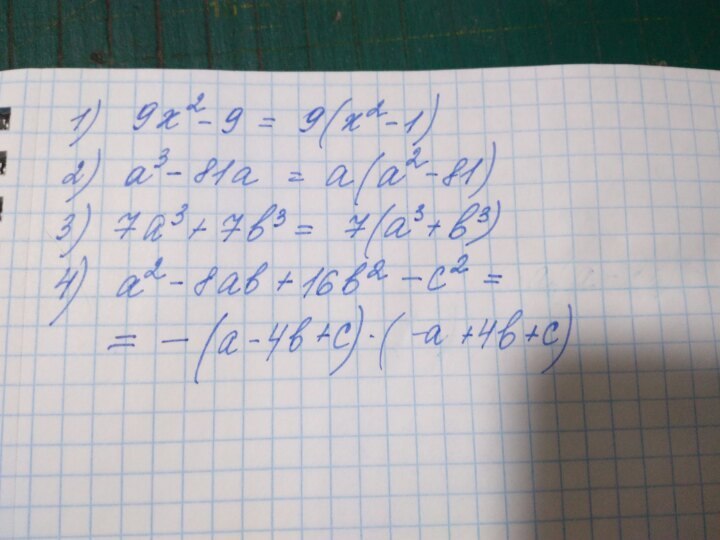 1) 9x² - 9 = 9(x² - 1)
2) a³ - 81a = a(a² - 81)
3) 7a³ + 7b³ = 7(a³ + b³)
4) a² - 8ab + 16b² - c² =
= - (a - 4b + c) · (-a + 4b + c)